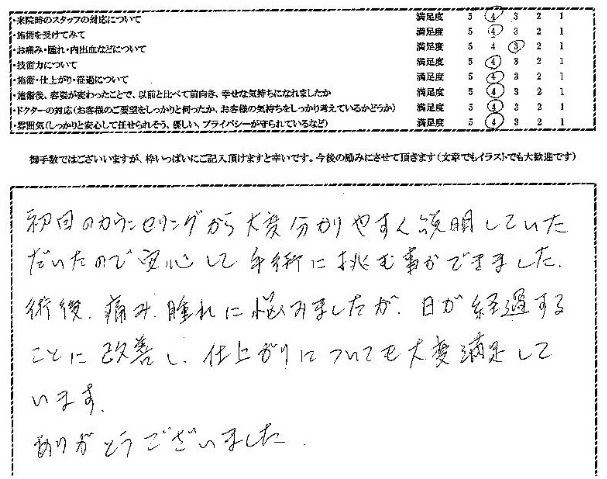 ・来院時のスタッフの対応について 満足度 5 4 3 2 1
・施術を受けてみて 満足度 5 4 3 2 1
・お痛み・腫れ・内出血などについて 満足度 5 4 3 2 1
・技術力について 満足度 5 4 3 2 1
・施術・仕上がり・経過について 満足度 5 4 3 2 1
・施術後、容姿が変わったことで、以前と比べて前向き、幸せな気持ちになれましたか 満足度 5 4 3 2 1
・ドクターの対応（お客様のご要望をしっかりと伺ったか、お客様の気持ちをしっかり考えているかどうか） 満足度 5 4 3 2 1
・雰囲気（しっかりと安心して任せられそう、優しい、プライバシーが守られているなど） 満足度 5 4 3 2 1
御手数ではございいますが、枠いっぱいにご記入頂けますと幸いです。今後の励みにさせて頂きます（文章でもイラストでも大歓迎です）
初回のカウンセリングから大変分かりやすく説明していた
だいたので安心して手術に挑む事ができました。
術後、痛み、腫れに悩みましたが、日が経過する
ことに改善し、仕上がりについても大変満足して
います。
ありがとうございました。